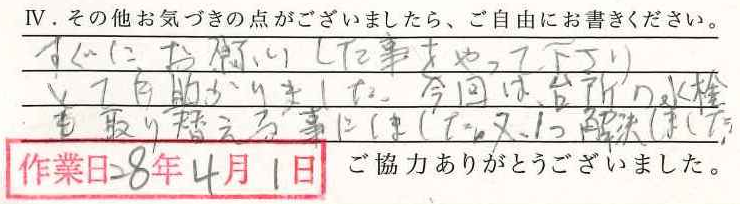 Ⅳ．その他お気づきの点がございましたら、ご自由にお書きください。
すぐにお願いした事をやって下さり
とても助かりました。今回は、台所の水栓
も取り替える事にしました。又、1つ解決しました。
作業日28年4月1日
ご協力ありがとうございました。